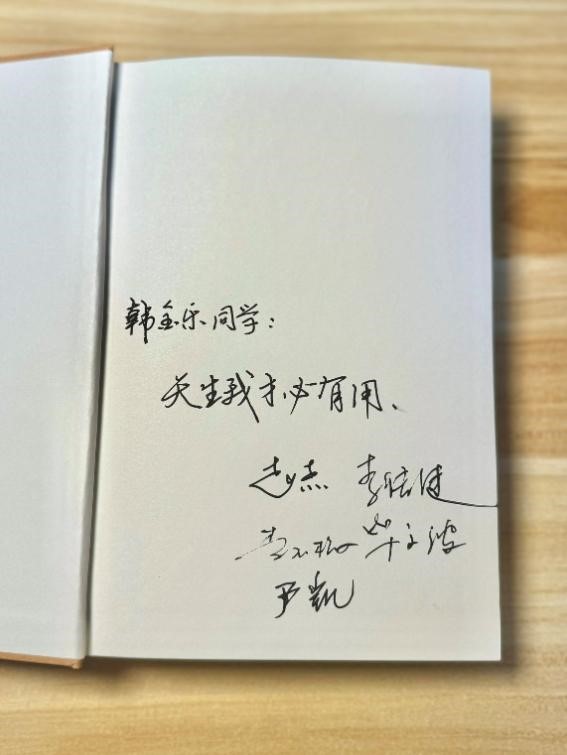 韩金乐同学：
天生我才必有用、
赵杰 李
毕文波
尹凯